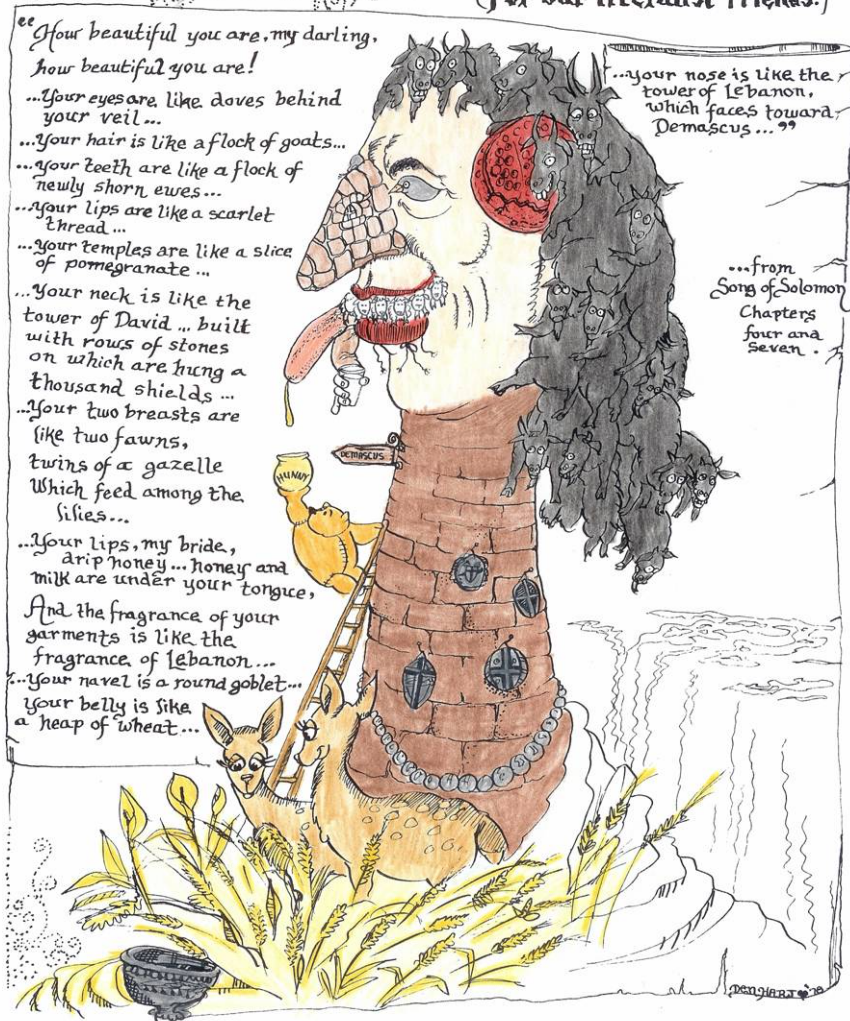 (For our literalist friends.)
"How beautiful you are, my darling,
how beautiful you are!
...Your eyes are like doves behind
your veil...
...Your hair is like a flock of goats...
...Your teeth are like a flock of
newly shorn ewes...
...Your lips are like a scarlet
thread...
...Your temples are like a slice
of pomegranate...
...Your neck is like the
tower of David ... built
with rows of stones
on which are hung a
thousand shields ...
...Your two breasts are
like two fawns,
twins of a gazelle
Which feed among the
lilies...
...Your lips, my bride,
drip honey... honey and
milk are under your tongue,
And the fragrance of your
garments is like the
fragrance of Lebanon...
...Your navel is a round goblet...
your belly is like
a heap of wheat...
...your nose is like the
tower of Lebanon,
which faces toward
Demascus..."
...from
Song of Solomon
Chapters
four and
seven.
DEMASCUS
HUNNY
DEN HART '78